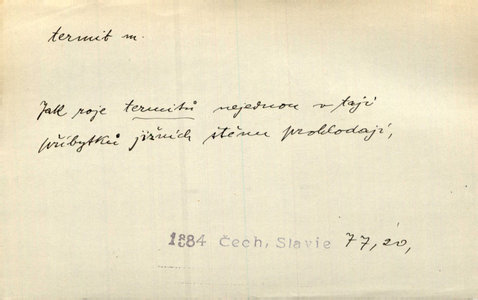 termit m.
Jak roje termitů nejednou v taji
příbytků jižních stěnu prohlodají,
1884 Čech, Slavie 77, 20,